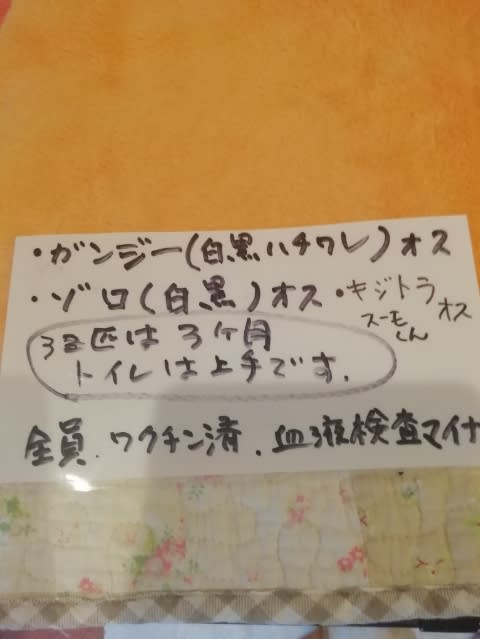 ・ガンジー(白黒ハチワレ)オス
・ゾロ(白黒)オス・キジトラ
スーモくん オス
3匹は3ヶ月
トイレは上手です.
全員.ワクチン済.血液検査マイナ